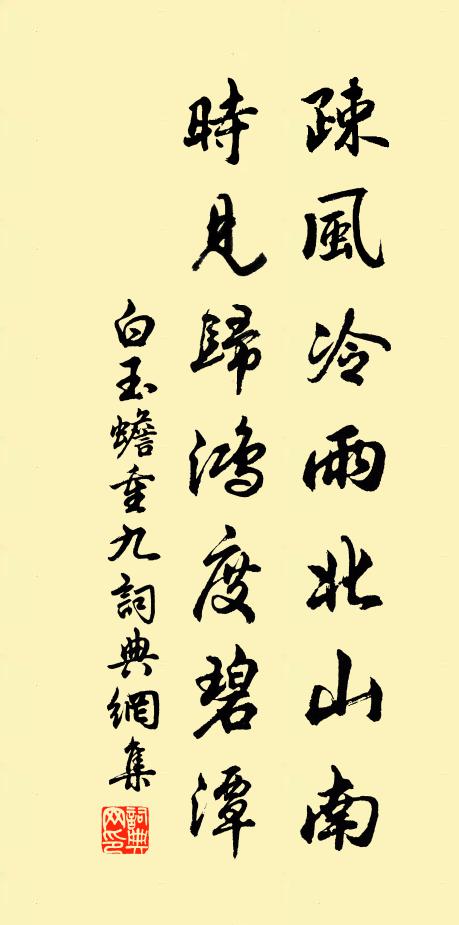 疎風冷雨北山南
時見歸鴻度碧潭
白玉蟾重九詞典網集
詞典網印